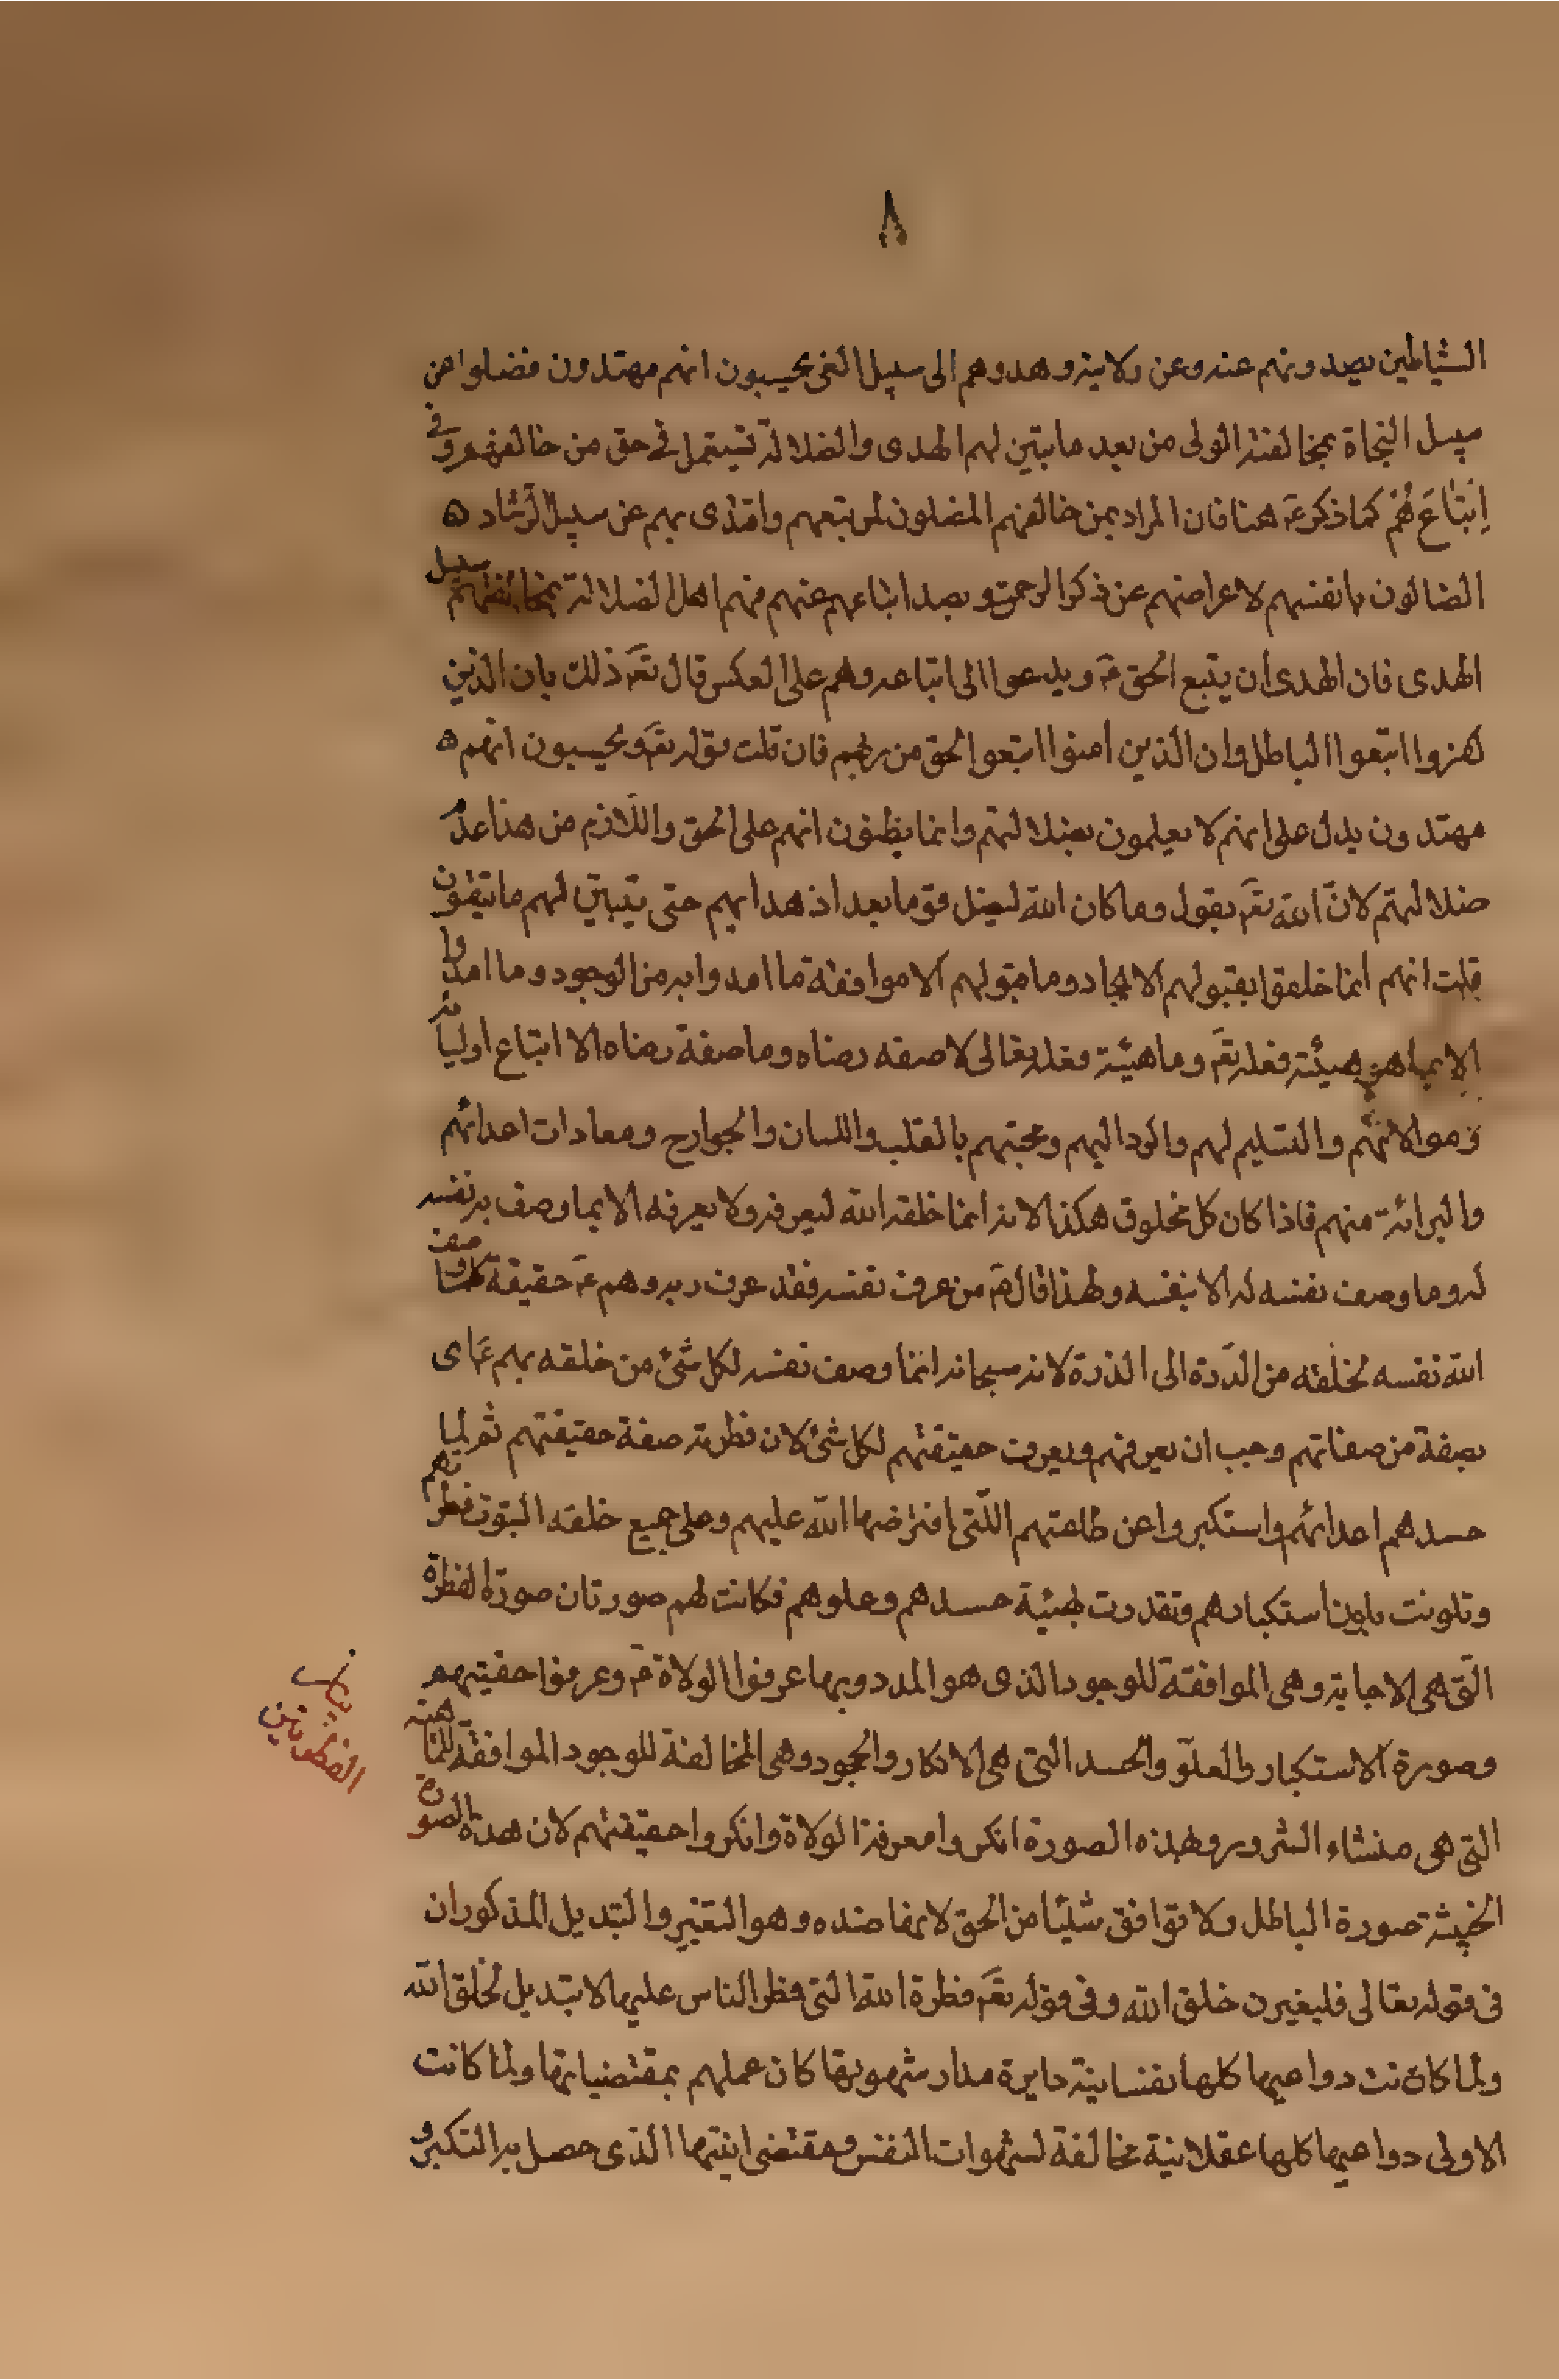 ٨
الشياطين يصدونهم عنه وعن ولايته وهدوهم الى سبيل الغى يحسبون انهم مهتدون فضلوا عن
سبيل النجاة بمخالفة الولى من بعد ما تبين لهم الهدى والضلالة تستعمل فى حق من خالفهم وفى
اِتّباعَ لهُم كما ذكر عَ هنا فان المراد بمن خالفهم المضلون لمن تبعهم واقتدى بهم عن سبيل الرشاد ه
الضالون بانفسهم لاعراضهم عن ذكر الرحمن وبصد اتباعهم عنهم فهم اهل الضلالة بمخالفتهم سبيل
الهدى فان الهدى ان يتبع الحق عَ ويدعوا الى اتباعه وهم على العكس قال تعَ ذلك بان الذين
كفروا اتبعوا الباطل وان الذين امنوا اتبعوا الحق من ربهم فان قلت قوله تعَ ويحسبون انهم ه
مهتدون يدل على انهم لا يعلمون بضلالتهم وانما يظنون انهم على الحق واللّازم من هذا عدم
ضلالهتم لانّ اللّه تعَ يقول وما كان اللّه ليضل قوما بعد اذ هداهم حتى يتبيّن لهم ما يتقون
قلت انهم انما خلقوا بقبولهم الايجاد وما قبولهم الا موافقة ما امدوا به من الوجود وما امدوا
الا بما هو هيئة فعله تعَ وما هيئة فعله تعالى الا صفه رضاه وما صفة رضاه الا اتباع اوليائه
فى موالاتهم والتسليم لهم والرد اليهم ومحبتهم بالقلب واللسان والجوارح ومعادات اعدائهم
والبرائة منهم فاذا كان كل مخلوق هكذا لانه انما خلقه اللّه ليعرفه ولا يعرفه الا بما وصف به نفسه
له وما وصف نفسه له الا بنفسه ولهذا قال عَ من عرف نفسه فقد عرف ربه وهم عَ حقيقة ما وصف
اللّه نفسه لخلقه من الدّرة الى الذرة لانه سبحانه انّما وصف نفسه لكل شئ من خلقه بهم عَ اى
بصفة من صفاتهم وجب ان يعرفهم ويعرف حقيقتهم لكل شئ لان فطرته صفة حقيقتهم ثم لما
حسدهم اعدائهم واستكبروا عن طاعتهم اللّتى افترضها اللّه عليهم وعلى جميع خلقه التوت فطرتهم
وتلونت بلون استكبارهم وتقدرت بهيئة حسدهم وعلوهم فكانت لهم صورتان صورة الفطرة
الّتى هى الاجابة وهى الموافقة للوجود الذى هو المدد وبها عرفوا الولاة عَ وعرفوا حقيتهم
وصورة الاستكبار والعلوّ والحسد التى هى الانكار والجحود وهى المخالفة للوجود الموافقة للماهية
التى هى منشاء الشرور وبهذه الصورة انكروا معرفة الولاة وانكروا حقيقتهم لان هذه الصورة
الخبيثة صورة الباطل ولا توافق شيئا من الحق لانها ضده وهو التغيير والتبديل المذكوران
فى قوله تعالى فليغيرن خلق اللّه وفى قوله تعَ فطرة اللّه التى فطر الناس عليها لا تبديل لخلق اللّه
ولما كانت دواعيها كلها نفسانية دايرة مدار شهوتها كان عملهم بمقتضياتها ولما كانت
الاولى دواعيها كلها عقلانية مخالفة لشهوات النفس ومقتضى انيتها الذى حصل به التكبر و
بيان
الفطرتين